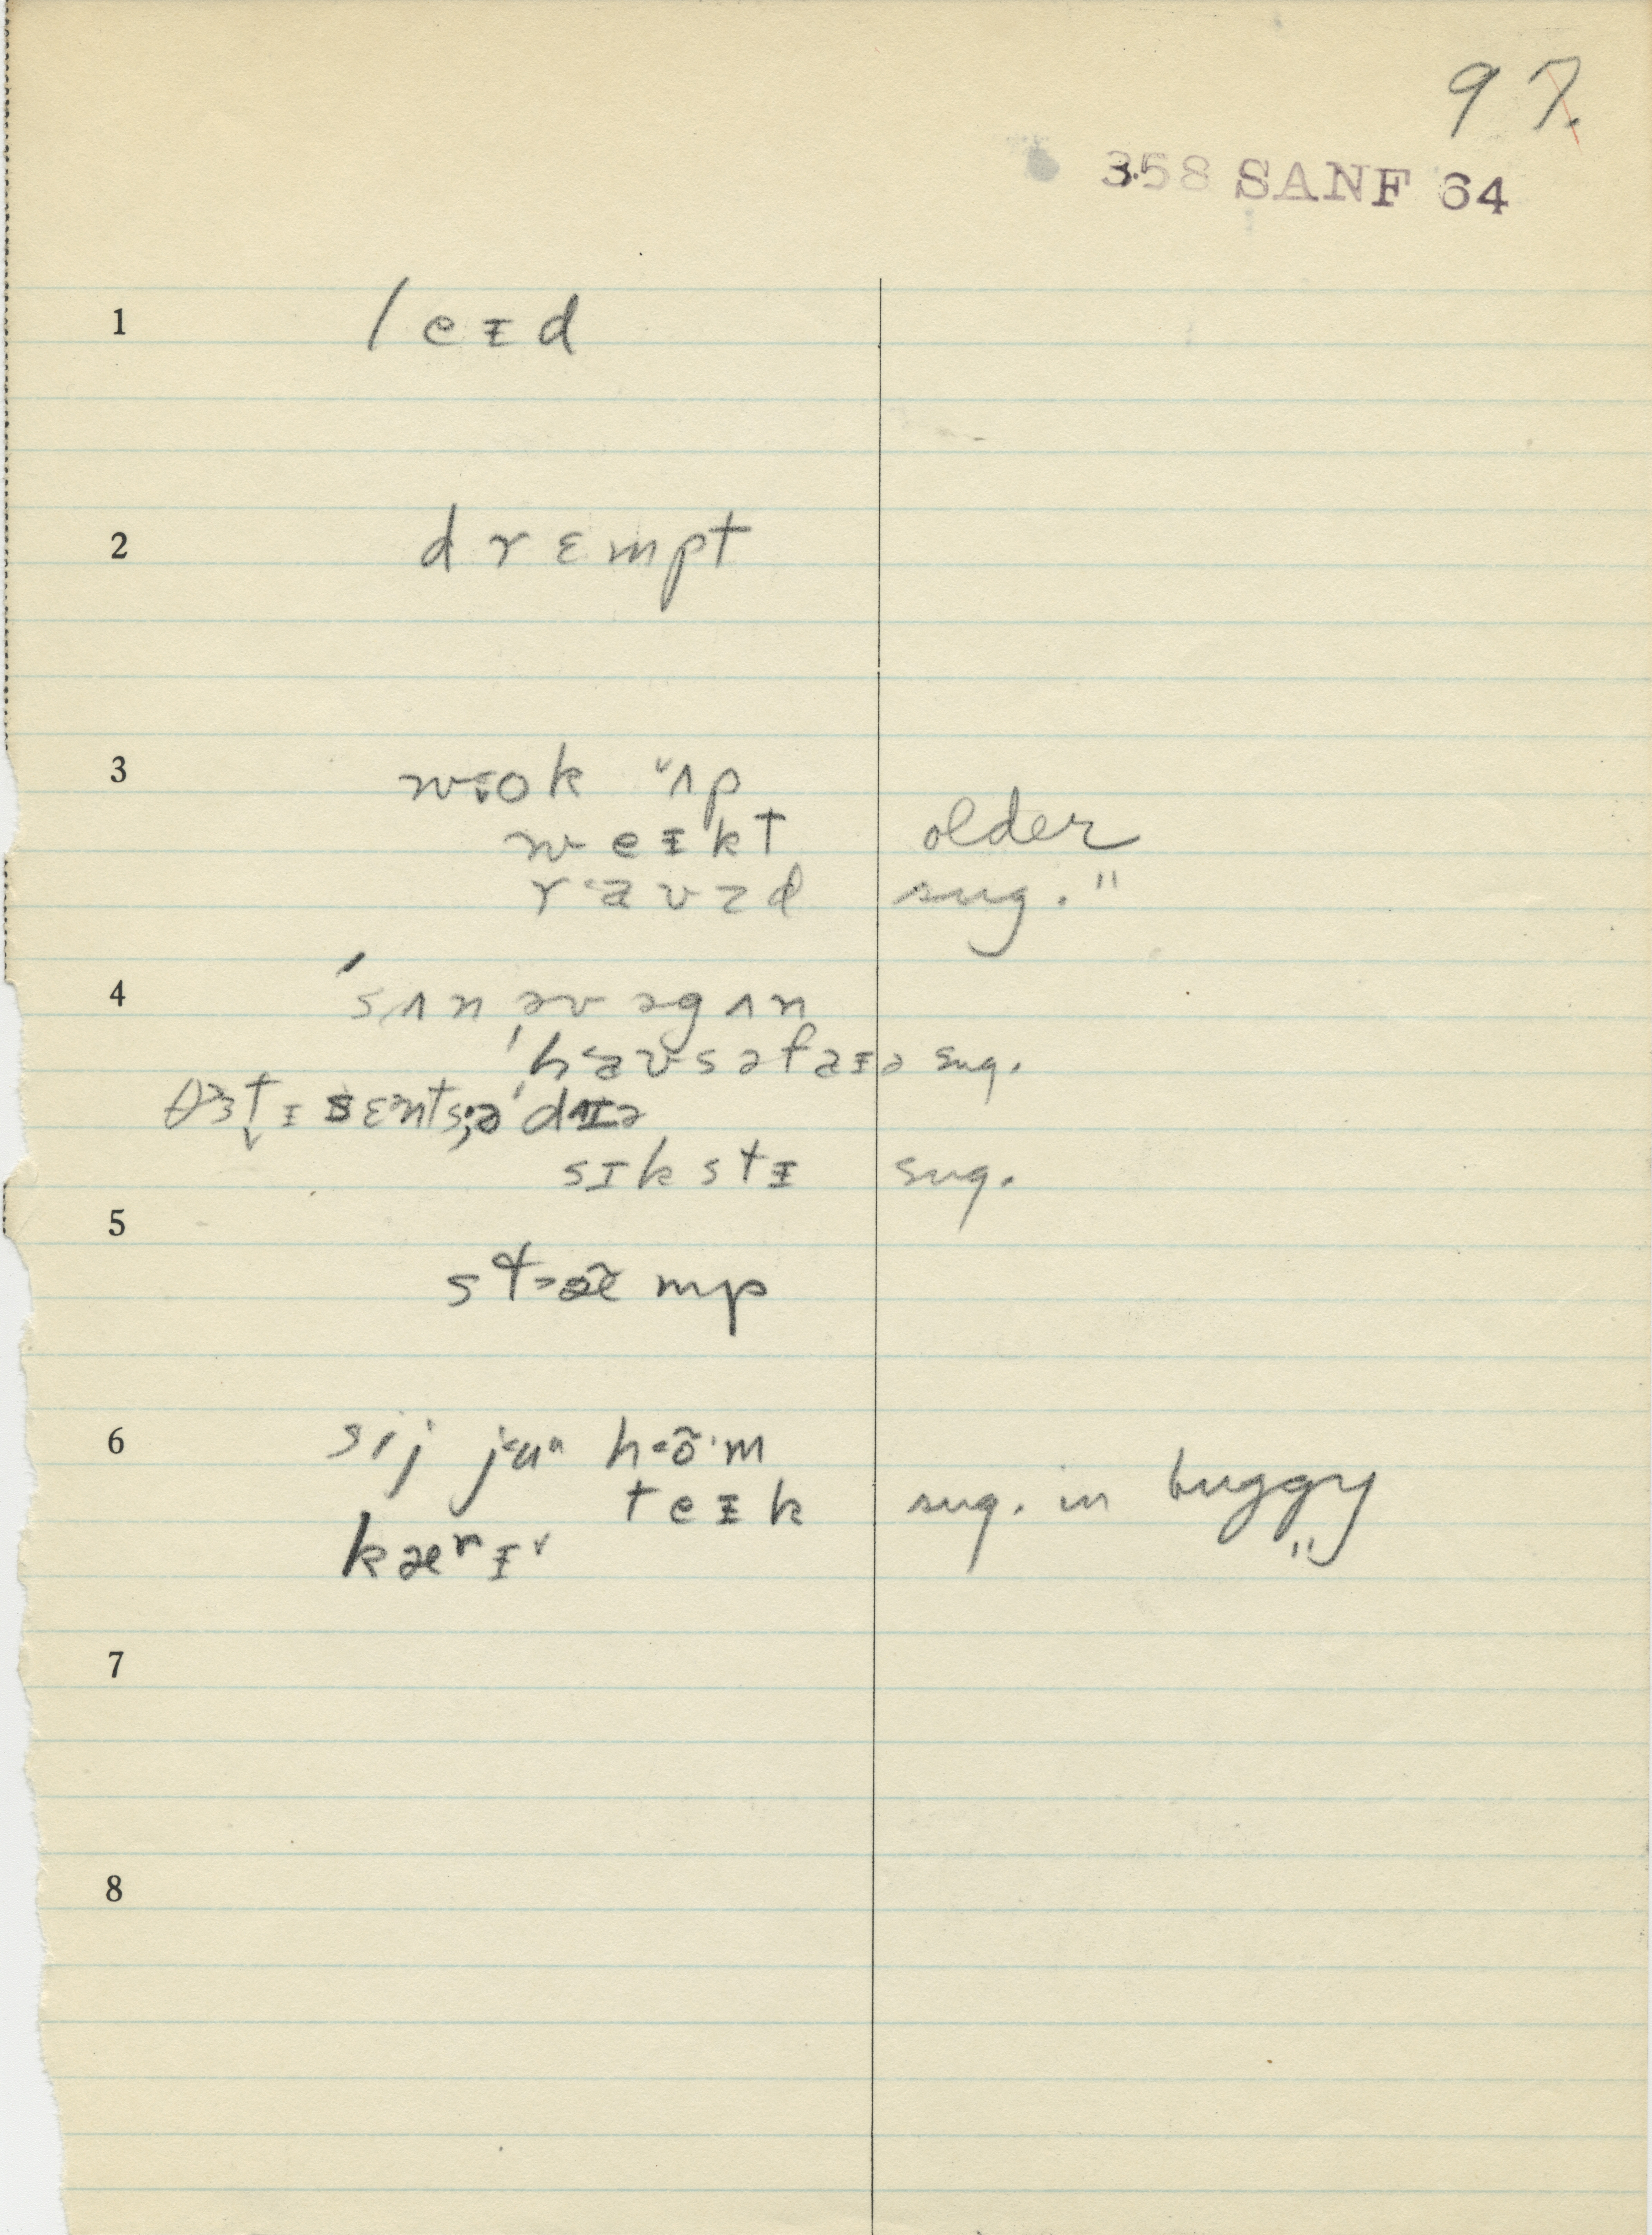 97.
358 SANF 64
1 leɪd
2 drɛmpt
3 wok ʌp
weɪkt older
raʊzd sug. "
4 ˈsʌn əv əgʌn
ˈhaʊsəfaɪə sug.
θɜtɪ sɛnts ə ˈdaɪə
sɪkstɪ sug.
5 stæ̃mp
6 sij ju hõm
teɪk sug. in buggy
kærɪ "
7
8